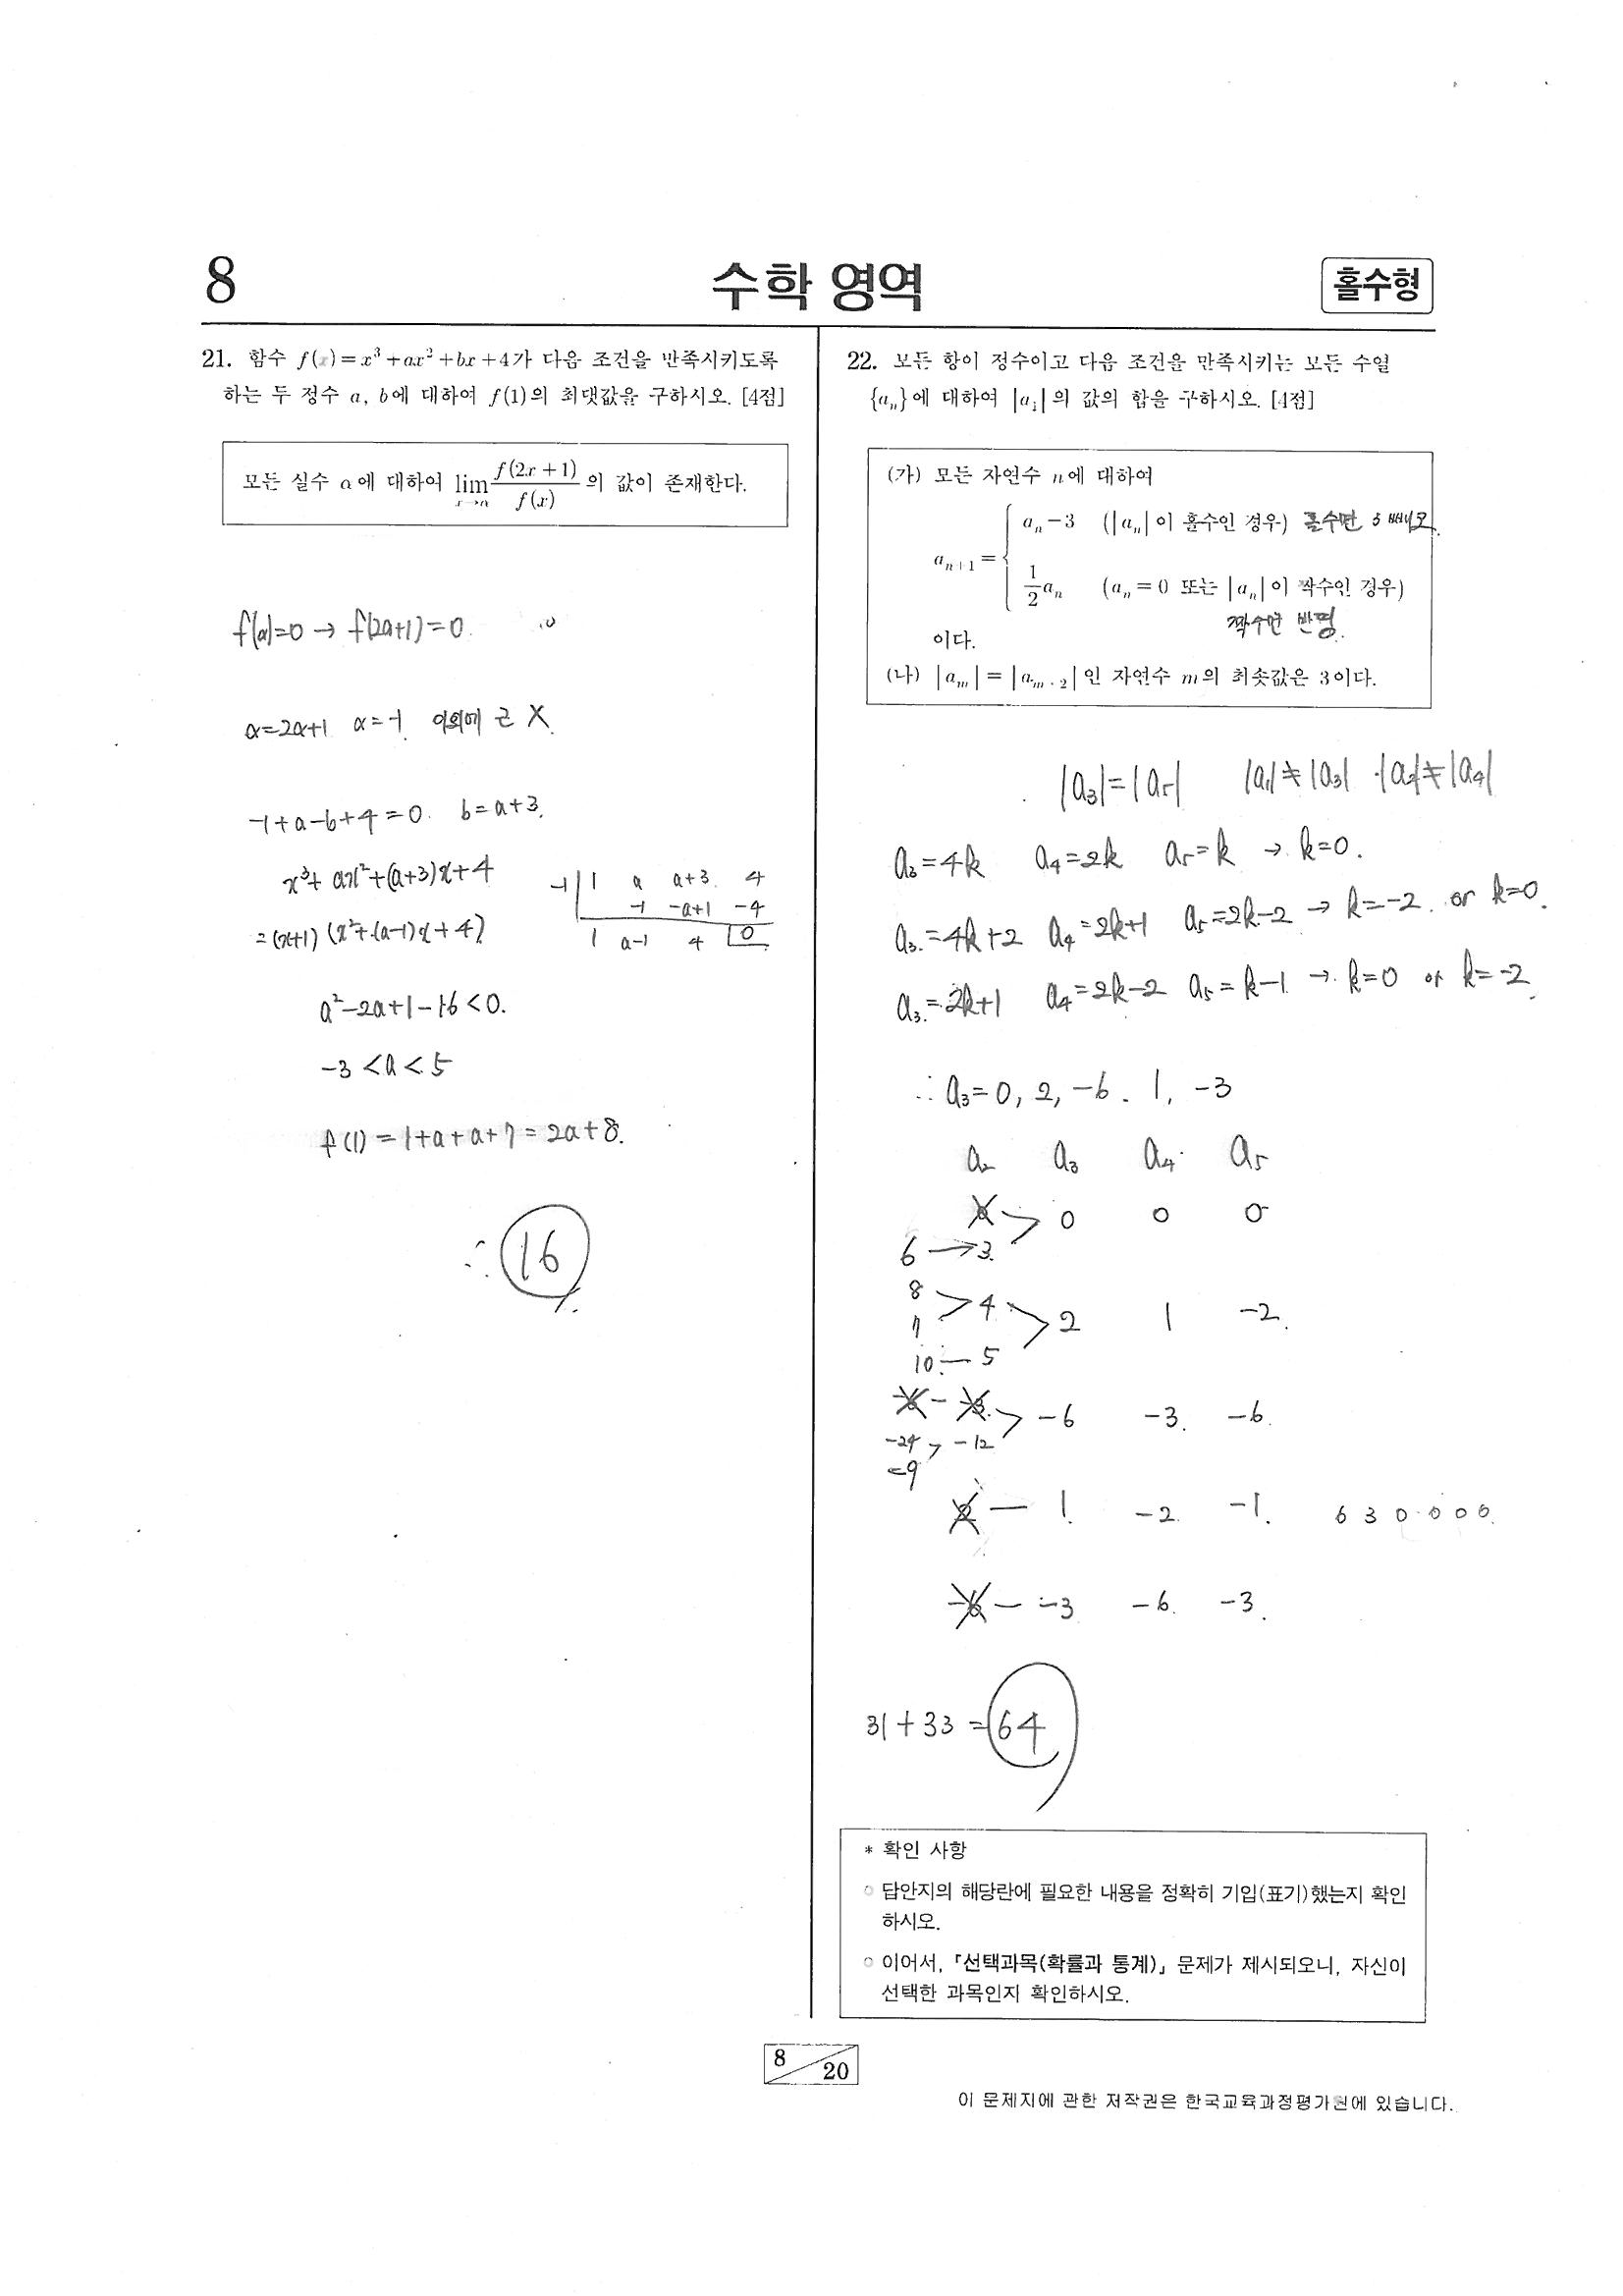 8
수학 영역
홀수형
21. 함수 f(x)=x³+ax²+bx+4가 다음 조건을 만족시키도록
하는 두 정수 a, b에 대하여 f(1)의 최댓값을 구하시오. [4점]
모든 실수 α에 대하여 lim x→α f(2x+1)/f(x) 의 값이 존재한다.
f(α)=0 → f(2α+1)=0
α=2α+1 α=-1 이외에 근 X
-1+a-b+4=0. b=a+3.
x³+ax²+(a+3)x+4
=(x+1)(x²+(a-1)x+4)
-1 | 1 a a+3 4
-1 -a+1 -4
1 a-1 4 0
a²-2a+1-16<0.
-3<a<5
f(1)=1+a+a+7=2a+8.
∴ 16
22. 모든 항이 정수이고 다음 조건을 만족시키는 모든 수열
{aₙ}에 대하여 |a₁|의 값의 합을 구하시오. [4점]
(가) 모든 자연수 n에 대하여
aₙ₊₁ = { aₙ-3 (|aₙ|이 홀수인 경우) 홀수면 3 빼고
½aₙ (aₙ=0 또는 |aₙ|이 짝수인 경우)
짝수면 반띵.
이다.
(나) |aₘ|=|aₘ₊₂|인 자연수 m의 최솟값은 3이다.
|a₃|=|a₅| |a₁|≠|a₃| |a₂|≠|a₄|
a₃=4k a₄=2k a₅=k → k=0.
a₃=4k+2 a₄=2k+1 a₅=2k-2 → k=-2. or k=0.
a₃=2k+1 a₄=2k-2 a₅=k-1 → k=0 or k=-2
∴ a₃=0, 2, -6. 1, -3
a₂ a₃ a₄ a₅
0 0 0 0
6 → 3.
8
> 4 > 2 1 -2.
7
10 - 5
-6 - -3. > -6 -3. -6.
-24 > -12
-9
2 - 1. -2. -1. 6 3 0 0 0 0.
-6 - -3 -6. -3.
31+33=64
* 확인 사항
○ 답안지의 해당란에 필요한 내용을 정확히 기입(표기)했는지 확인
하시오.
○ 이어서, 「선택과목(확률과 통계)」 문제가 제시되오니, 자신이
선택한 과목인지 확인하시오.
8/20
이 문제지에 관한 저작권은 한국교육과정평가원에 있습니다.